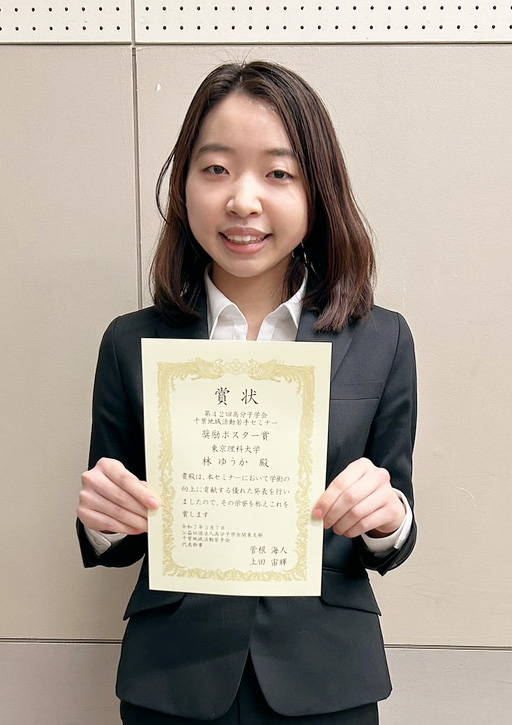 賞状
第42回高分子学会
千葉地域活動若手セミナー
奨励ポスター賞
東京理科大学
林 ゆうか 殿
貴殿は、本セミナーにおいて学術の
向上に貢献する優れた発表を行い
ましたので、その栄誉を称えこれを
賞します
令和7年3月7日
公益社団法人高分子学会関東支部
千葉地域活動若手会
代表幹事
菅根 海人
上田 宙輝